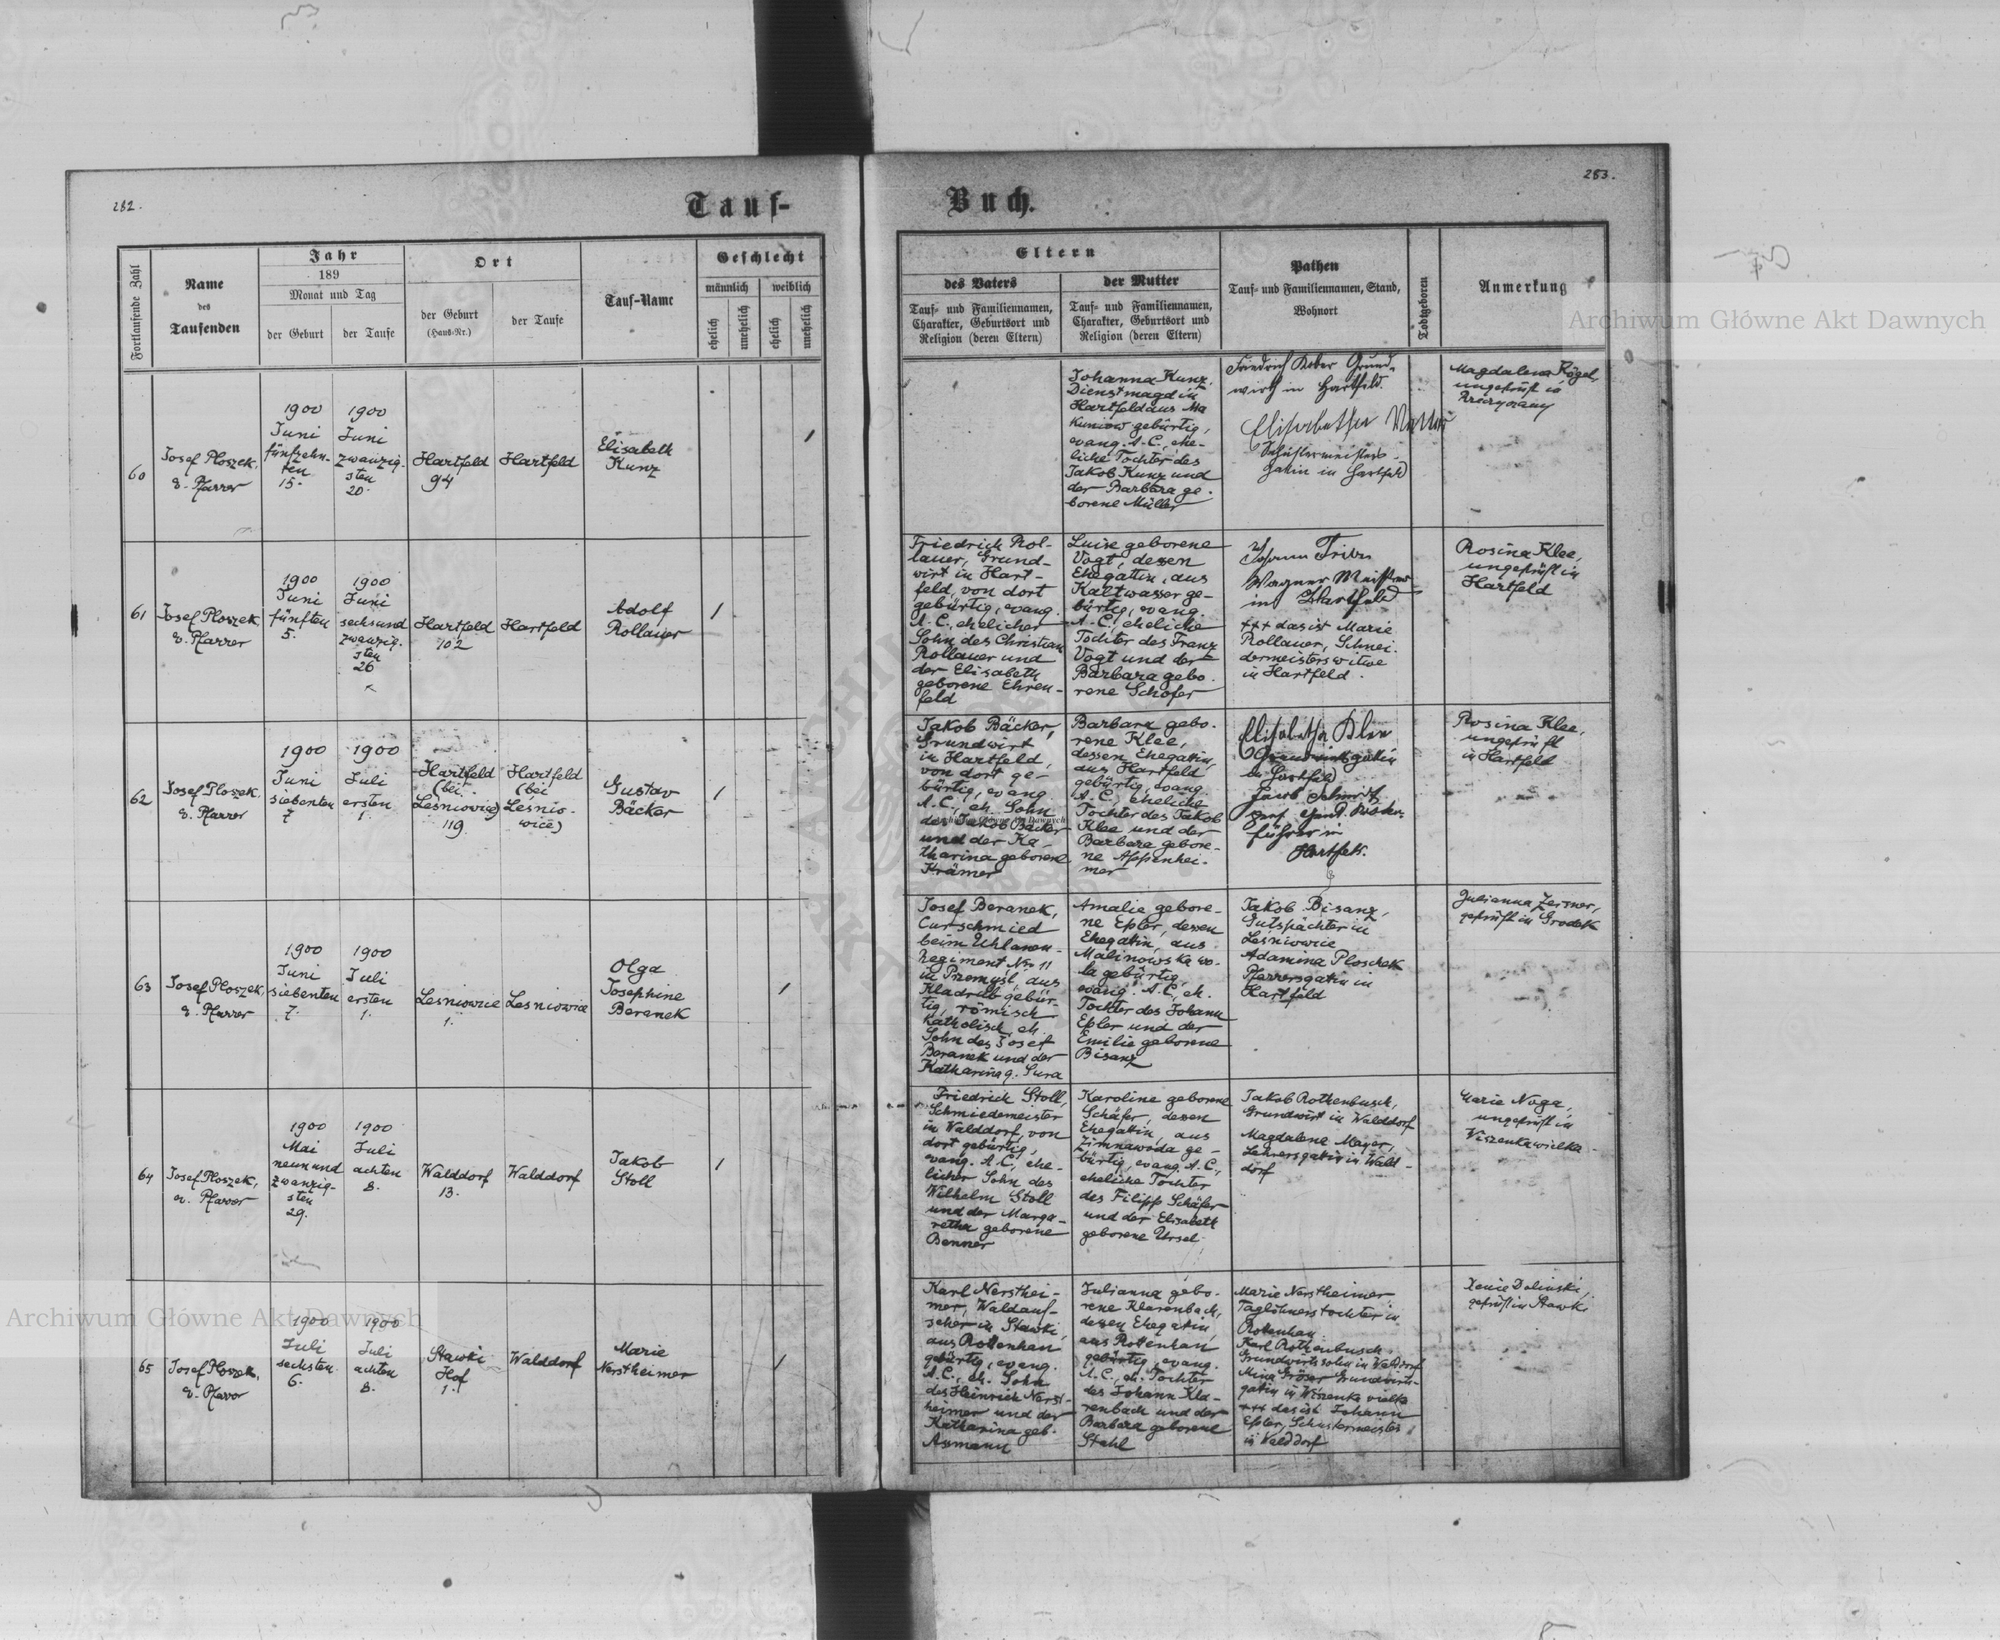 282.
Tauf-
Fortlaufende Zahl
Name
des
Taufenden
Jahr
189
Monat und Tag
der Geburt
der Taufe
Ort
der Geburt
(Haus-Nr.)
der Taufe
Tauf-Name
Geschlecht
männlich
weiblich
ehelich
unehelich
ehelich
unehelich
60
Josef Ploszek,
e. Pfarrer
1900
Juni
fünfzehn-
ten
15.
1900
Juni
zwanzig-
sten
20.
Hartfeld
94
Hartfeld
Elisabeth
Kunz
1
61
Josef Ploszek
e. Pfarrer
1900
Juni
fünften
5.
1900
Juni
sechsund
zwanzig-
sten
26
Hartfeld
102
Hartfeld
Adolf
Rollauer
1
62
Josef Ploszek,
e. Pfarrer
1900
Juni
siebenten
7.
1900
Juli
ersten
1.
Hartfeld
(bei
Leśniowice)
119
Hartfeld
(bei
Leśnio-
wice)
Gustav
Bäcker
1
63
Josef Ploszek,
e. Pfarrer
1900
Juni
siebenten
7.
1900
Juli
ersten
1.
Leśniowice
1.
Leśniowice
Olga
Josephine
Beranek
1
64
Josef Ploszek,
e. Pfarrer
1900
Mai
neunund
zwanzig-
sten
29.
1900
Juli
achten
8.
Walddorf
13.
Walddorf
Jakob
Stoll
1
65
Josef Ploszek,
e. Pfarrer
1900
Juli
sechsten
6.
1900
Juli
achten
8.
Stawki
Hof
1.
Walddorf
Marie
Nerstheimer
1
283.
Buch.
Eltern
des Vaters
Tauf- und Familiennamen,
Charakter, Geburtsort und
Religion (deren Eltern)
der Mutter
Tauf- und Familiennamen,
Charakter, Geburtsort und
Religion (deren Eltern)
Pathen
Tauf- und Familiennamen, Stand,
Wohnort
Todtgeboren
Anmerkung
Johanna Kunz,
Dienstmagd in
Hartfeld aus Ma
kuniow gebürtig,
evang. A. C., ehe-
liche Tochter des
Jakob Kunz und
der Barbara ge-
borene Müller
Friedrich Kober Grund-
wirth in Hartfeld.
Elisabetha
Schustermeisters-
gatin in Hartfeld
Magdalena Kögel,
ungeprüft in
Friedrich Rol-
lauer, Grund-
wirt in Hart-
feld, von dort
gebürtig, evang.
A. C., ehelicher
Sohn des Christian
Rollauer und
der Elisabeth
geborene Ehren-
feld
Luise geborene
Vogt, dessen
Ehegattin, aus
Kaltwasser ge-
bürtig, evang.
A. C., eheliche
Tochter des Franz
Vogt und der
Barbara gebo-
rene Schäfer
Johann
Wagner Meister
in Hartfeld
+++ das ist Marie
Rollauer, Schnei-
dermeisterswitwe
in Hartfeld.
Rosina Klee,
ungeprüft in
Hartfeld
Jakob Bäcker,
Grundwirt
in Hartfeld,
von dort ge-
bürtig, evang.
A. C., eh. Sohn
des Jakob Bäcker
und der Ka-
tharina geborene
Krämer
Barbara gebo-
rene Klee,
dessen Ehegattin,
aus Hartfeld
gebürtig, evang.
A. C., eheliche
Tochter des Jakob
Klee und der
Barbara gebore-
ne Appenhei-
mer
Elisabetha Klee
Grundwirthsgattin
in Hartfeld
Jacob Schmidt
führer in
Hartfeld.
Rosina Klee,
ungeprüft
in Hartfeld
Josef Beranek,
Curschmied
beim Uhlanen-
regiment Nr. 11
in Przemyśl, aus
Kladrub gebür-
tig, römisch
katholisch, eh.
Sohn des Josef
Beranek und der
Katharina g. Sura
Amalie gebore-
ne Epler, dessen
Ehegattin, aus
Malinowska wo-
la gebürtig,
evang. A. C., eh.
Tochter des Johann
Epler und der
Emilie geborene
Bisanz
Jakob Bisanz,
Gutspächter in
Leśniowice
Adamina Ploschek
Pfarrersgatin in
Hartfeld
Julianna Zerner,
geprüft in Grodek
Friedrich Stoll,
Schmiedemeister
in Walddorf, von
dort gebürtig,
evang. A. C., ehe-
licher Sohn des
Wilhelm Stoll
und der Marga-
retha geborene
Benner
Karoline geborene
Schäfer, dessen
Ehegattin, aus
Zimnawoda ge-
bürtig, evang. A. C.,
eheliche Tochter
des Filipp Schäfer
und der Elisabeth
geborene Ursel.
Jakob Rothenbusch,
Grundwirt in Walddorf
Magdalena Mayer,
Lehrersgatin in Wald-
dorf
Marie Noga,
ungeprüft in
Wiszenkawielka
Karl Nersthei-
mer, Waldauf-
seher in Stawki,
aus Rottenhan
gebürtig, evang.
A. C., eh. Sohn
des Heinrich Nerst-
heimer und der
Katharina geb.
Assmann
Julianna gebo-
rene Klarenbach,
dessen Ehegatin,
aus Rottenhan
gebürtig, evang.
A. C., eh. Tochter
des Johann Kla-
renbach und der
Barbara geborene
Stahl
Marie Nerstheimer,
Taglöhnerstochter in
Rottenhan
Karl Rothenbusch,
Grundwirtssohn in Walddorf
Mina Gröser Grundwirts-
gatin in Wiszenka wielka
+++ das ist Johann
Epler, Schustermeister
in Walddorf
Xenie Dolinski,
geprüft in Stawki
Archiwum Główne Akt Dawnych
Archiwum Główne Akt Dawnych
Archiwum Główne Akt Dawnych